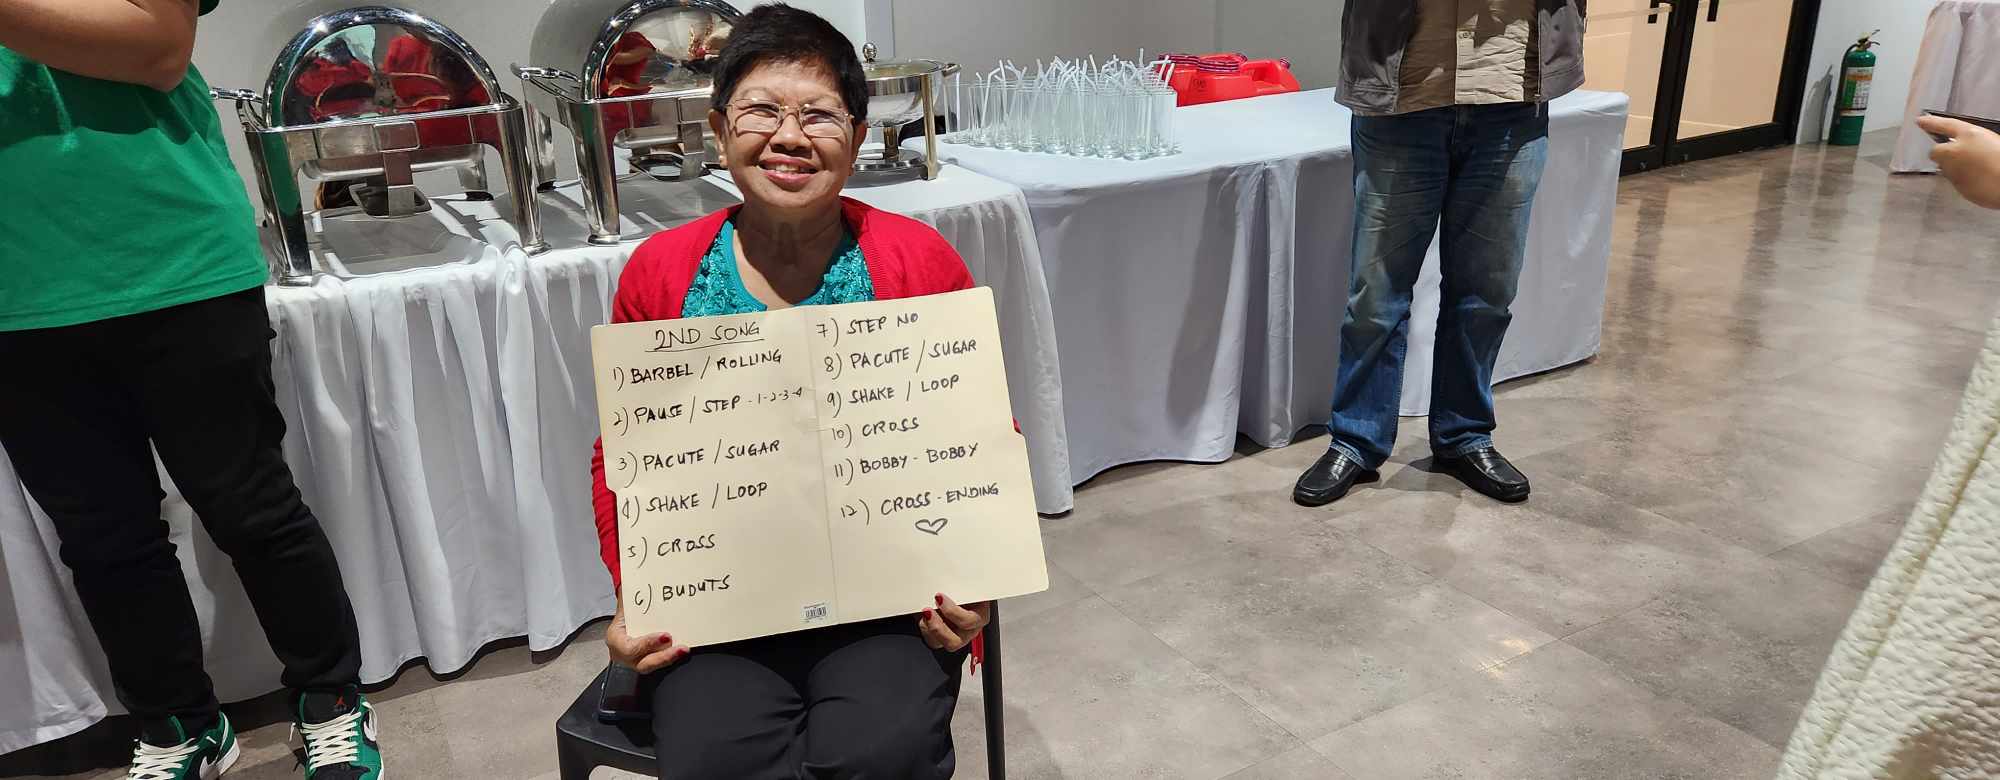 2ND SONG
1) BARBEL / ROLLING
2) PAUSE / STEP - 1-2-3-4
3) PACUTE / SUGAR
4) SHAKE / LOOP
5) CROSS
6) BUDUTS
7) STEP NO
8) PACUTE / SUGAR
9) SHAKE / LOOP
10) CROSS
11) BOBBY - BOBBY
12) CROSS - ENDING